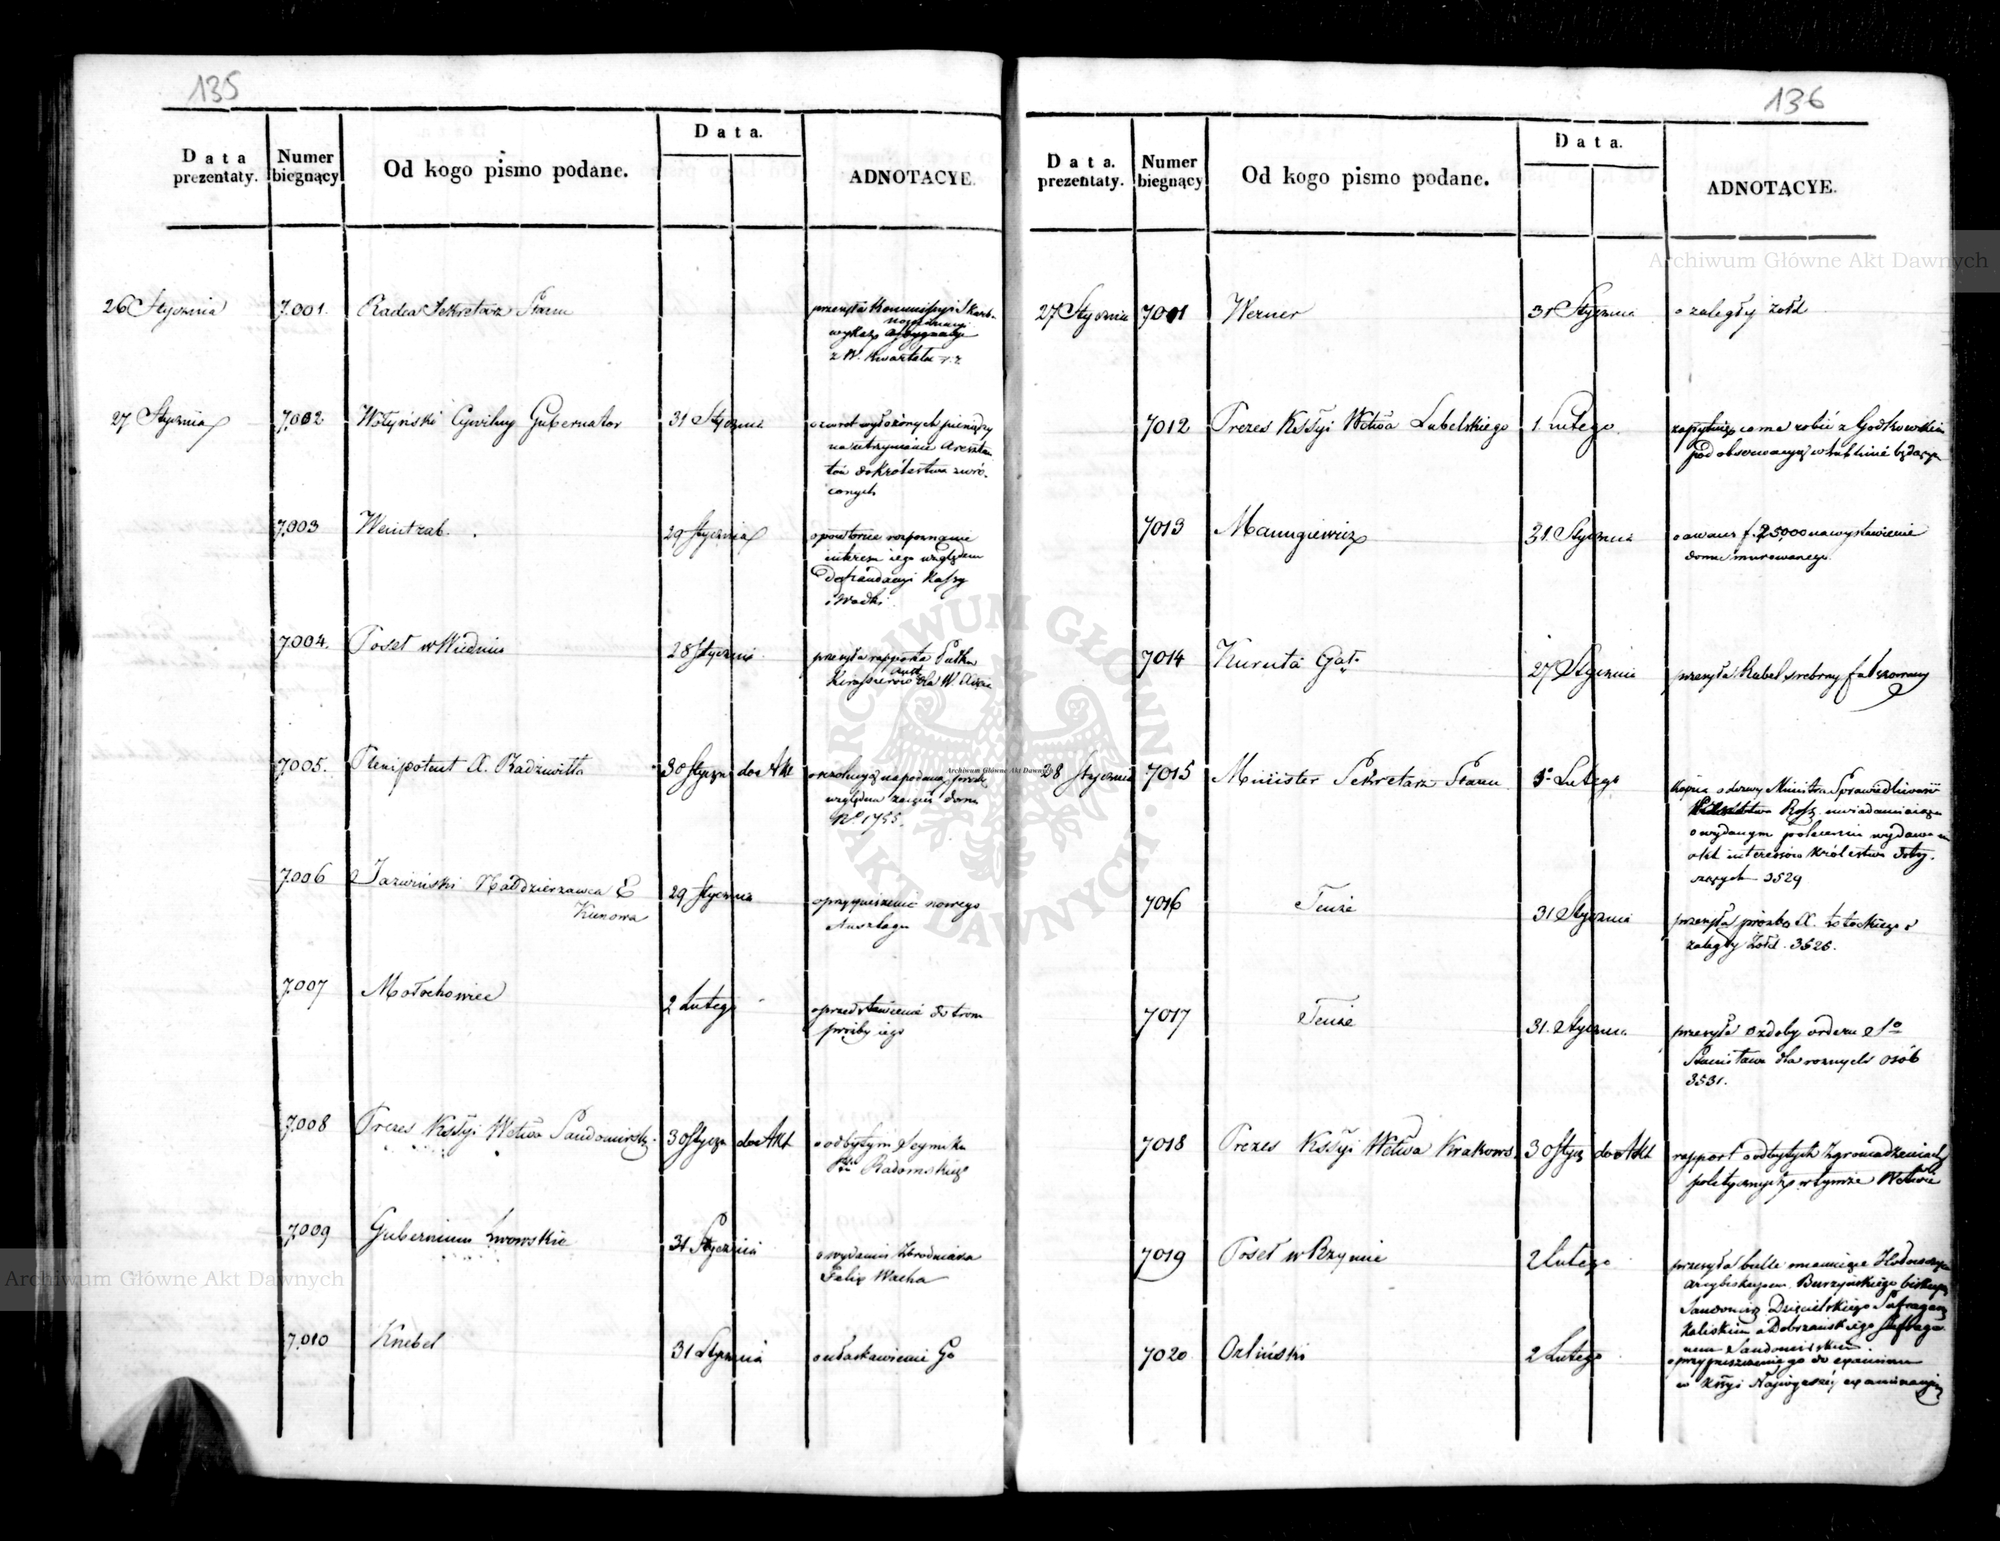 135
Data prezentaty.
Numer biegnący
Od kogo pismo podane.
Data.
ADNOTACYE.
26 Stycznia
7.001.
Radca Sekretarz Stanu
przesyła Kommissyi Skarb.
wykaz Assygnacyi
z IV. Kwartału r. z.
27 Stycznia
7.002
Wołyński Cywilny Gubernator
31 Stycznia
o zwrot wyłożonych pieniędzy
na utrzymanie Aresztan
tów do Królestwa zwró-
conych
7.003
Weintrab.
29 Stycznia
o powtórne rozpoznanie
interesu jego względem
Defraudacyi Kassy
i Wódki
7.004.
Poseł w Wiedniu
28 Stycznia
przesyła rapporta Pułku
Kirassierów dla W. Xcia
7.005.
Plenipotent X. Radziwiłła
30 Stycz
do Akt
względem domu
No 1755.
7.006
Jazwiński Naddzierżawca E
Kunowa
29 Stycznia
o przyspieszenie nowego
Anszlagu
7.007
Mołochowiec
2 Lutego
o przedstawienie do tronu
prośby jego
7.008
Prezes Kssyi Wctwa Sandomirsk.
30 Stycz
do Akt
o odbytym Seymiku
Ptu Radomskiego
7.009
Gubernium Lwowskie
31 Stycznia
o wydanie Zbrodniarza
Felix Wacha
7.010
Knebel
31 Stycznia
o ułaskawienie Go
136
Data. prezentaty.
Numer biegnący
Od kogo pismo podane.
Data.
ADNOTACYE.
27 Stycznia
7011
Werner
31 Stycznia
o zaległy żołd
7012
Prezes Kssyi Wctwa Lubelskiego
1. Lutego
zapytuje co ma robić z Godkowskim
pod obserwacyą w Lublinie będącym
7013
Maungiewicz
31. Stycznia
o awans f. 25000 na wystawienie
domu murowanego
7014
Kuruta Gał.
27 Stycznia
przesyła Rubel srebrny fałszowany
28 Stycznia
7015
Minister Sekretarz Stanu
5 Lutego
Kopia odezwy Ministra Sprawiedliwości
Ross. uwiadamiaiąca
o wydanym poleceniu wydawania
akt interessów Królestwa doty-
czących 3529
7016
Tenże
31 Stycznia
przesyła prośbę X. o
zaległy Żołd. 3526.
7017
Tenże
31. Stycznia
przesyła Ozdoby orderu So
Stanisława dla roznych osób
3531.
7018
Prezes Kssyi Wctwa Krakows.
30 Stycz
do Akt
rapport o odbytych Zgromadzeniach
politycznych w tymże Wctwie
7019
Poseł w Rzymie
2 Lutego
przesyła bulle
Arcybiskupem Burzyńskiego biskupem
Sandomirs Dzięcielskiego Sufraganem
Kaliskim a Dobrzańskiego Sufraga-
nem Sandomirskim.
7020
Orliński
2 Lutego
o przypuszczenie go do examinu
w Kssyi Najwyższej examinacyjnej
Archiwum Główne Akt Dawnych
Archiwum Główne Akt Dawnych
Archiwum Główne Akt Dawnych
ARCHIWUM GŁÓWNE AKT DAWNYCH